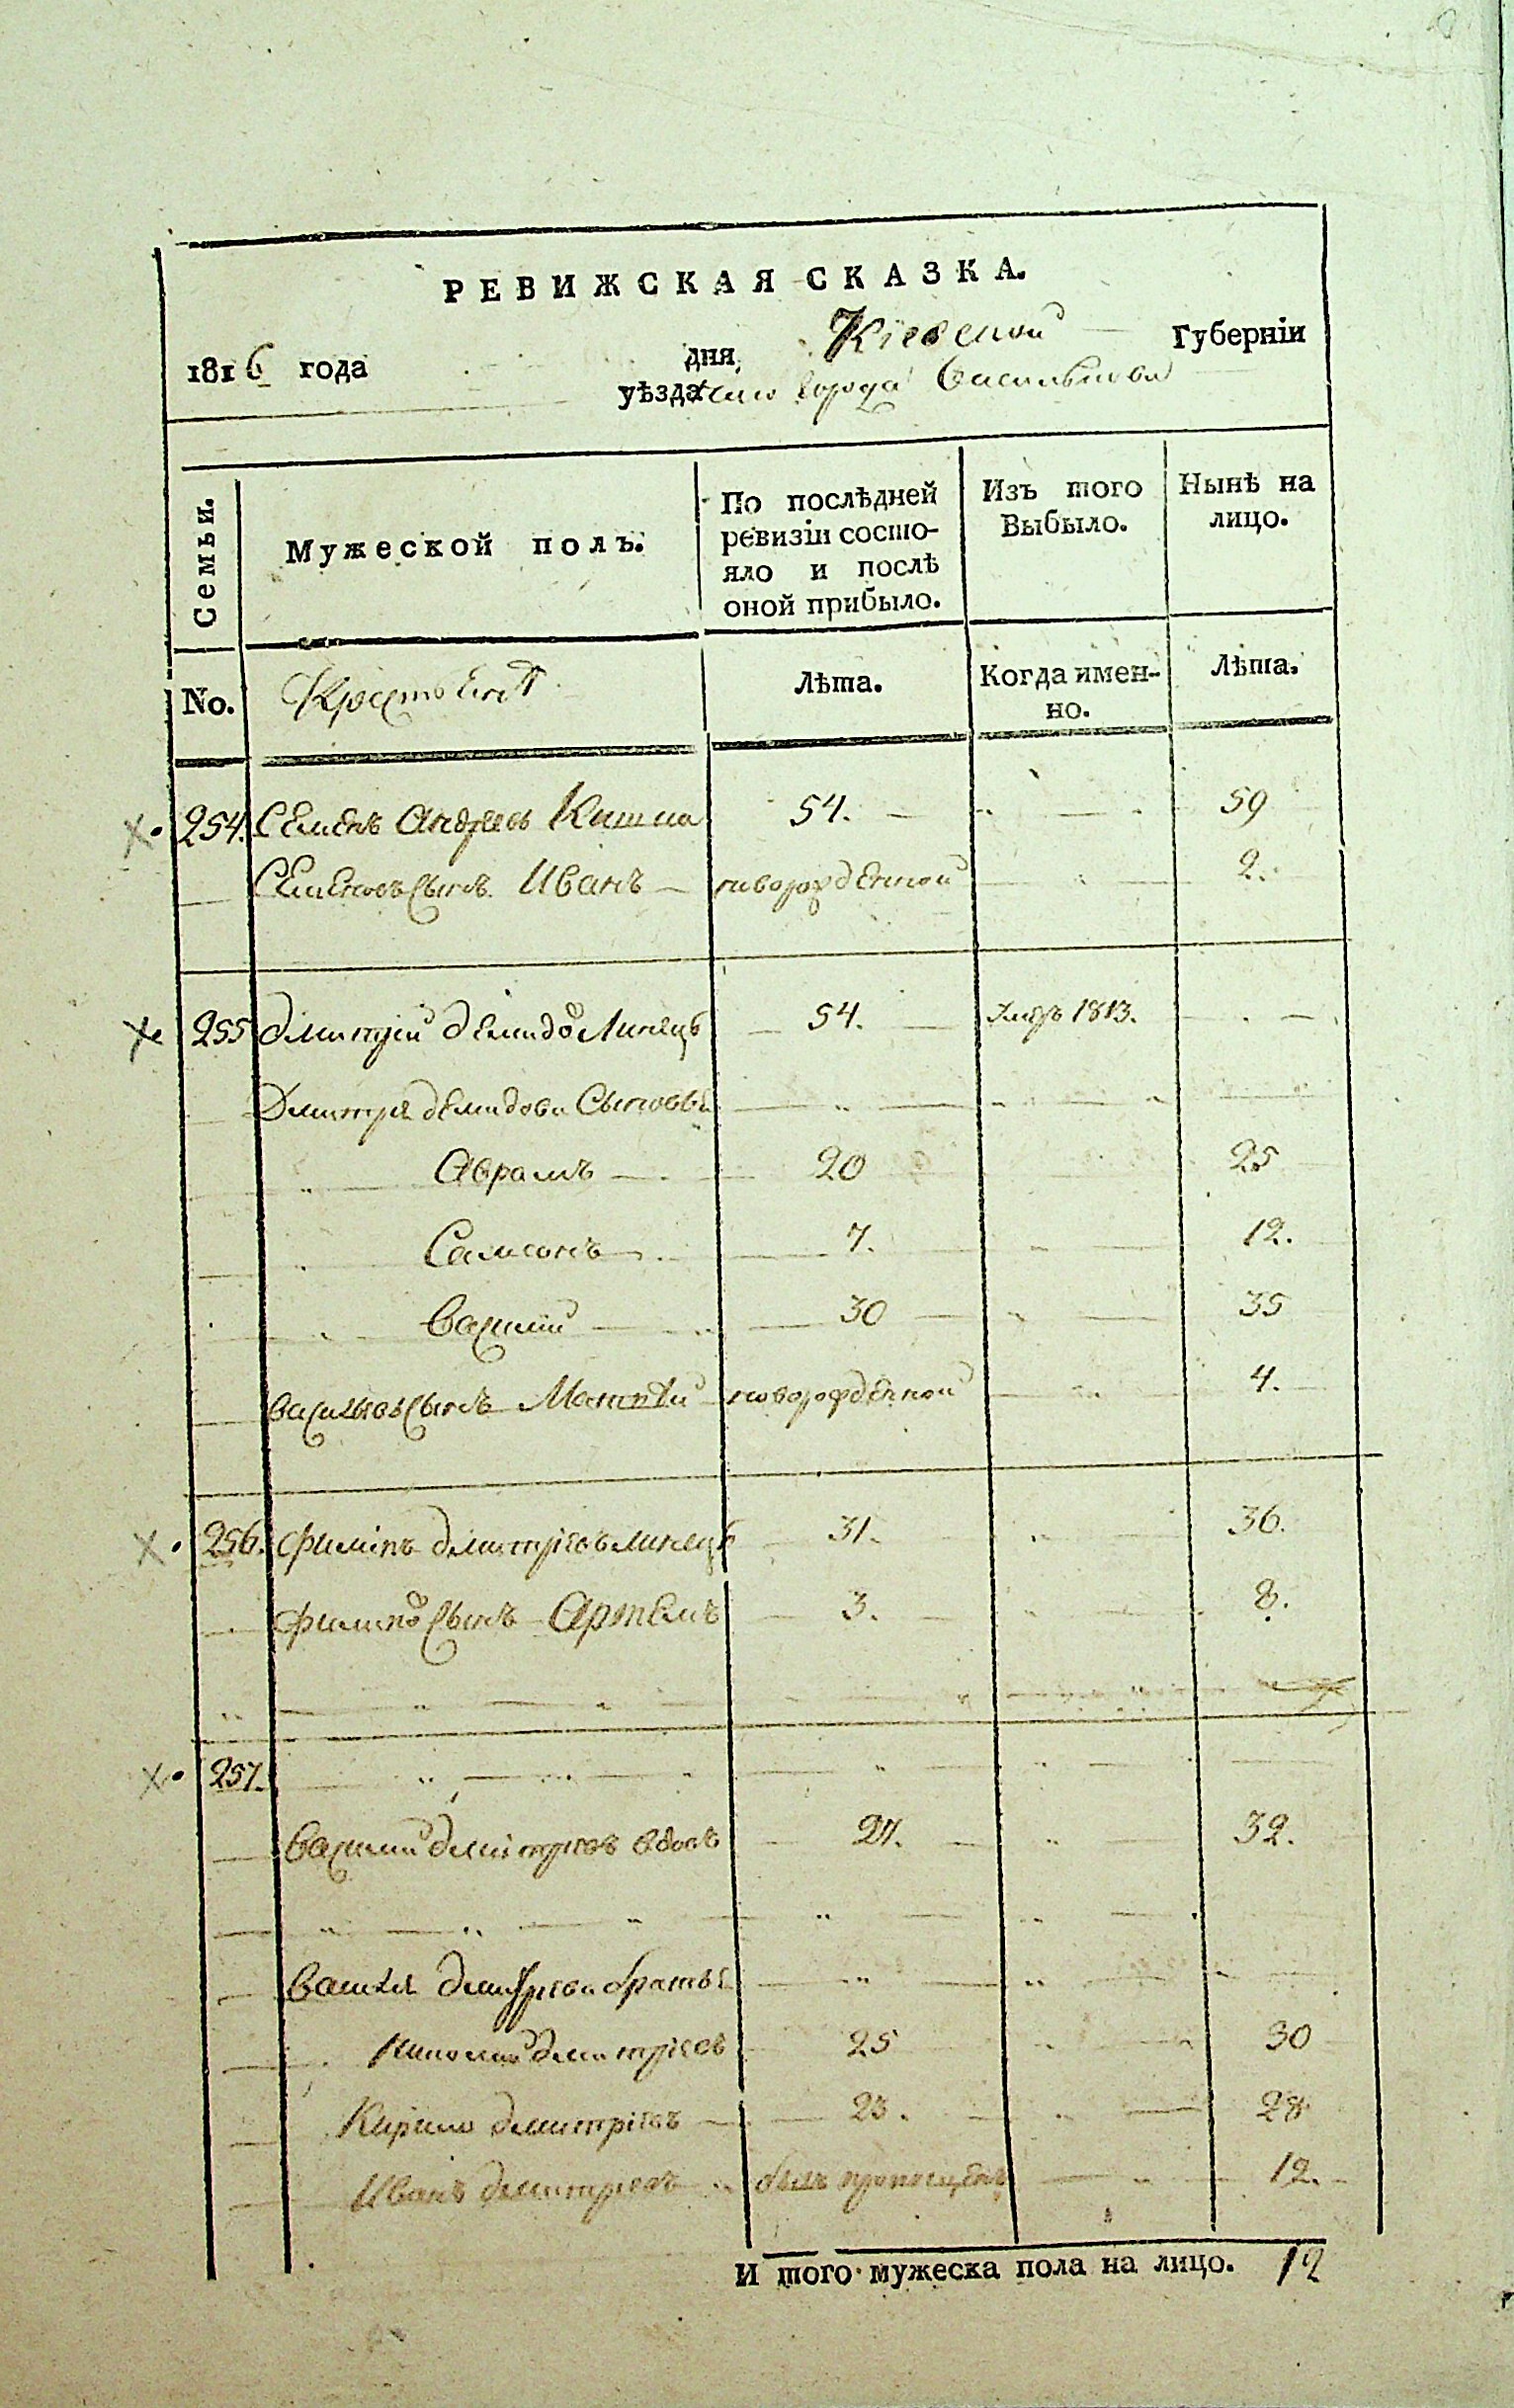 РЕВИЖСКАЯ СКАЗКА.
1816 года дня, Кіевской Губерніи
уѣзда города Василькова
Семьи. Мужеской полъ. По послѣдней ревизіи состояло и послѣ оной прибыло. Изъ того Выбыло. Нынѣ на лицо.
No. Крестьянъ Лѣта. Когда именно. Лѣта.
254. Семенъ Андреевъ Кишка 54. 59
Семеновъ сынъ Иванъ новорожденной 2.
255 Дмитрій Демидо Линецъ 54. 1813.
Дмитрія Демидова Сыновья
Аврамъ 20 25
Самсонъ 7. 12.
Василий 30 35
Васильевъ сынъ Матвѣй новорожденной 4.
256. Филипъ Дмитріевъ Линецъ 31. 36.
Филипо сынъ Артемъ 3. 8.
257.
Василий Дмитріевъ 27. 32.
Василия Дмитріева братья
Дмитріевъ 25 30
Кирило Дмитріевъ 23. 28
Иванъ Дмитріевъ былъ пропущенъ 12.
И того мужеска пола на лицо. 12